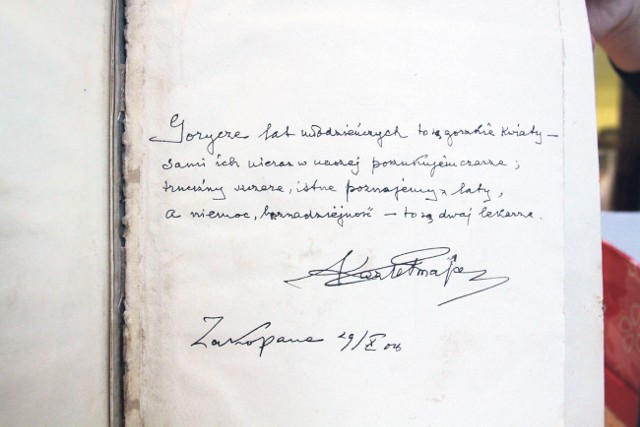 Gorycze lat młodzieńczych to są gorzkie kwiaty —
sami ich nieraz w naszej poszukujem czarze;
trucizny szczere, istne poznajemy z laty,
a niemoc, beznadziejność — to są dwaj lekarze.
Zakopane 29/X 06